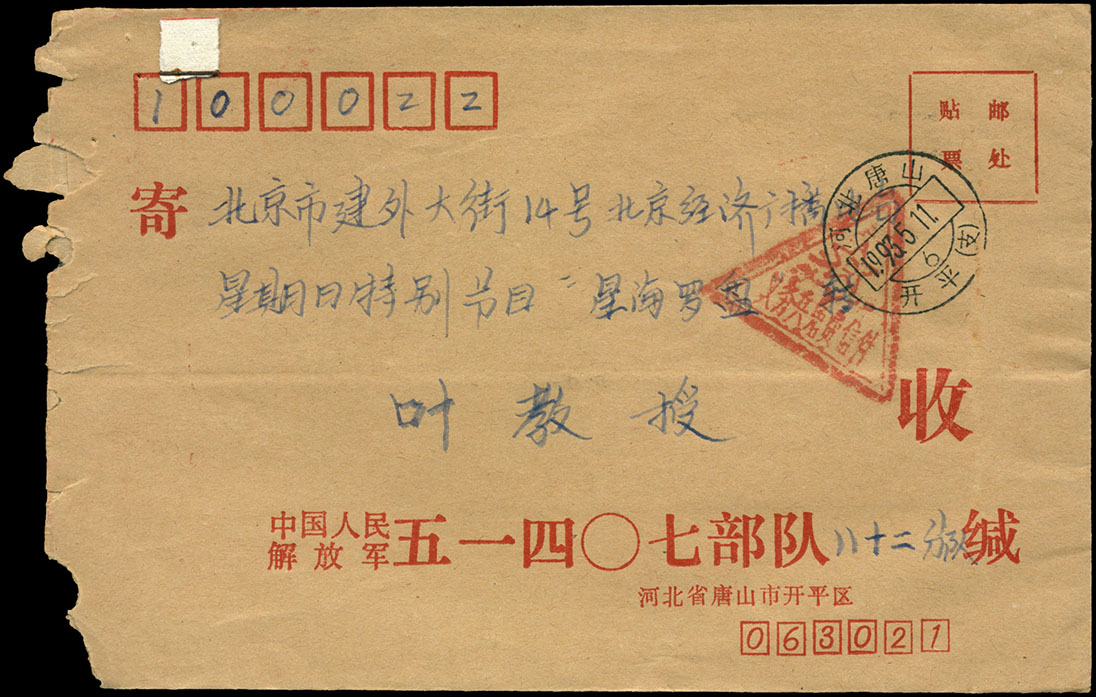 100022
贴 邮
票 处
寄 北京市建外大街14号北京经济广播
星期日特别节目"星海罗盘 转
叶教授
收
河北唐山
1993.5.11.
开平(支)
中国人民
解放军 五一四〇七部队八十二分队 缄
河北省唐山市开平区
063021